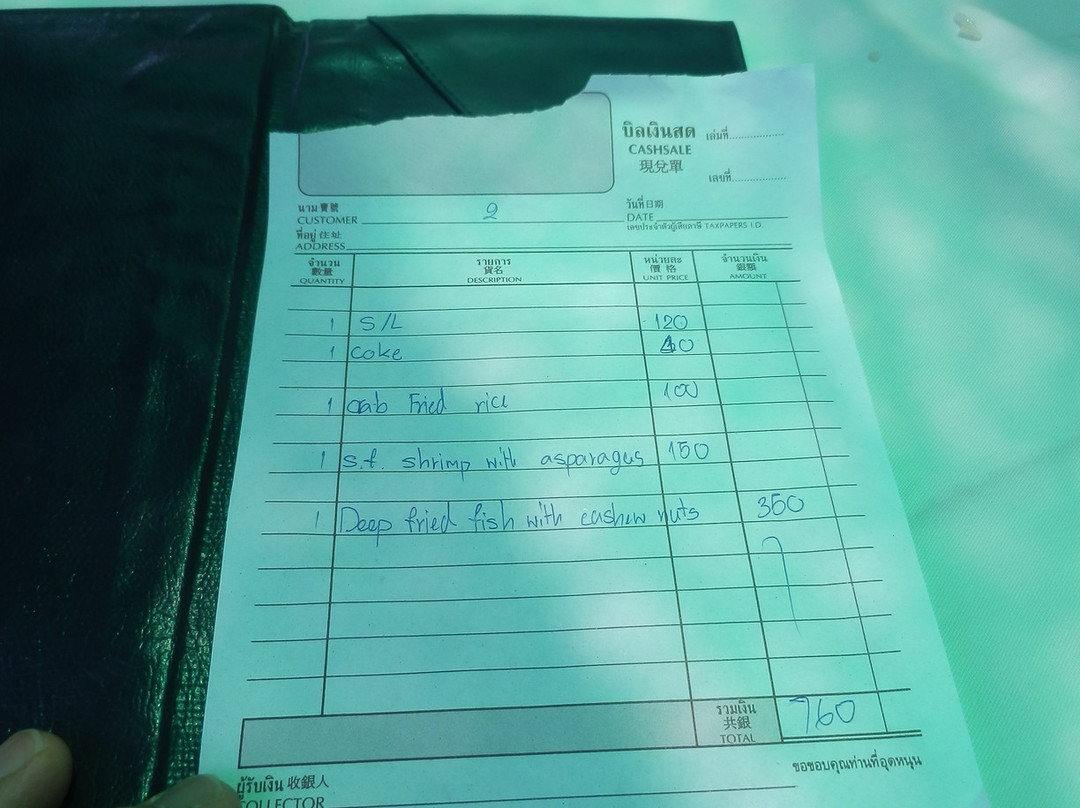 บิลเงินสด เล่มที่
CASHSALE
現兌單
เลขที่
นาม寶號
CUSTOMER 2
วันที่日期
DATE
ที่อยู่住址
ADDRESS
เลขประจำตัวผู้เสียภาษี TAXPAPERS I.D.
จำนวน รายการ หน่วยละ จำนวนเงิน
數量 貨名 價格 銀額
QUANTITY DESCRIPTION UNIT PRICE AMOUNT
1 S/L 120
1 coke 40
1 crab Fried rice 100
1 s.f. shrimp with asparagus 150
1 Deep fried fish with cashew nuts 350
รวมเงิน
共銀
TOTAL 760
ขอขอบคุณท่านที่อุดหนุน
ผู้รับเงิน 收銀人
COLLECTOR